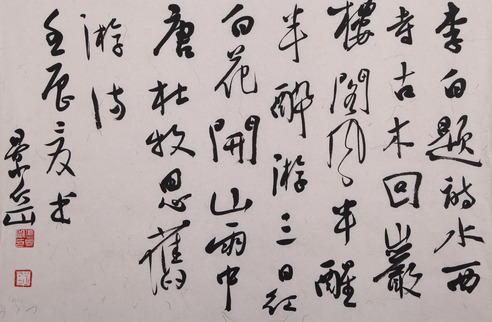 李白題詩水西
寺古木回巖
樓閣風半醒
半醉游三日紅
白花開山雨中
唐杜牧思舊
游诗
壬辰夏书